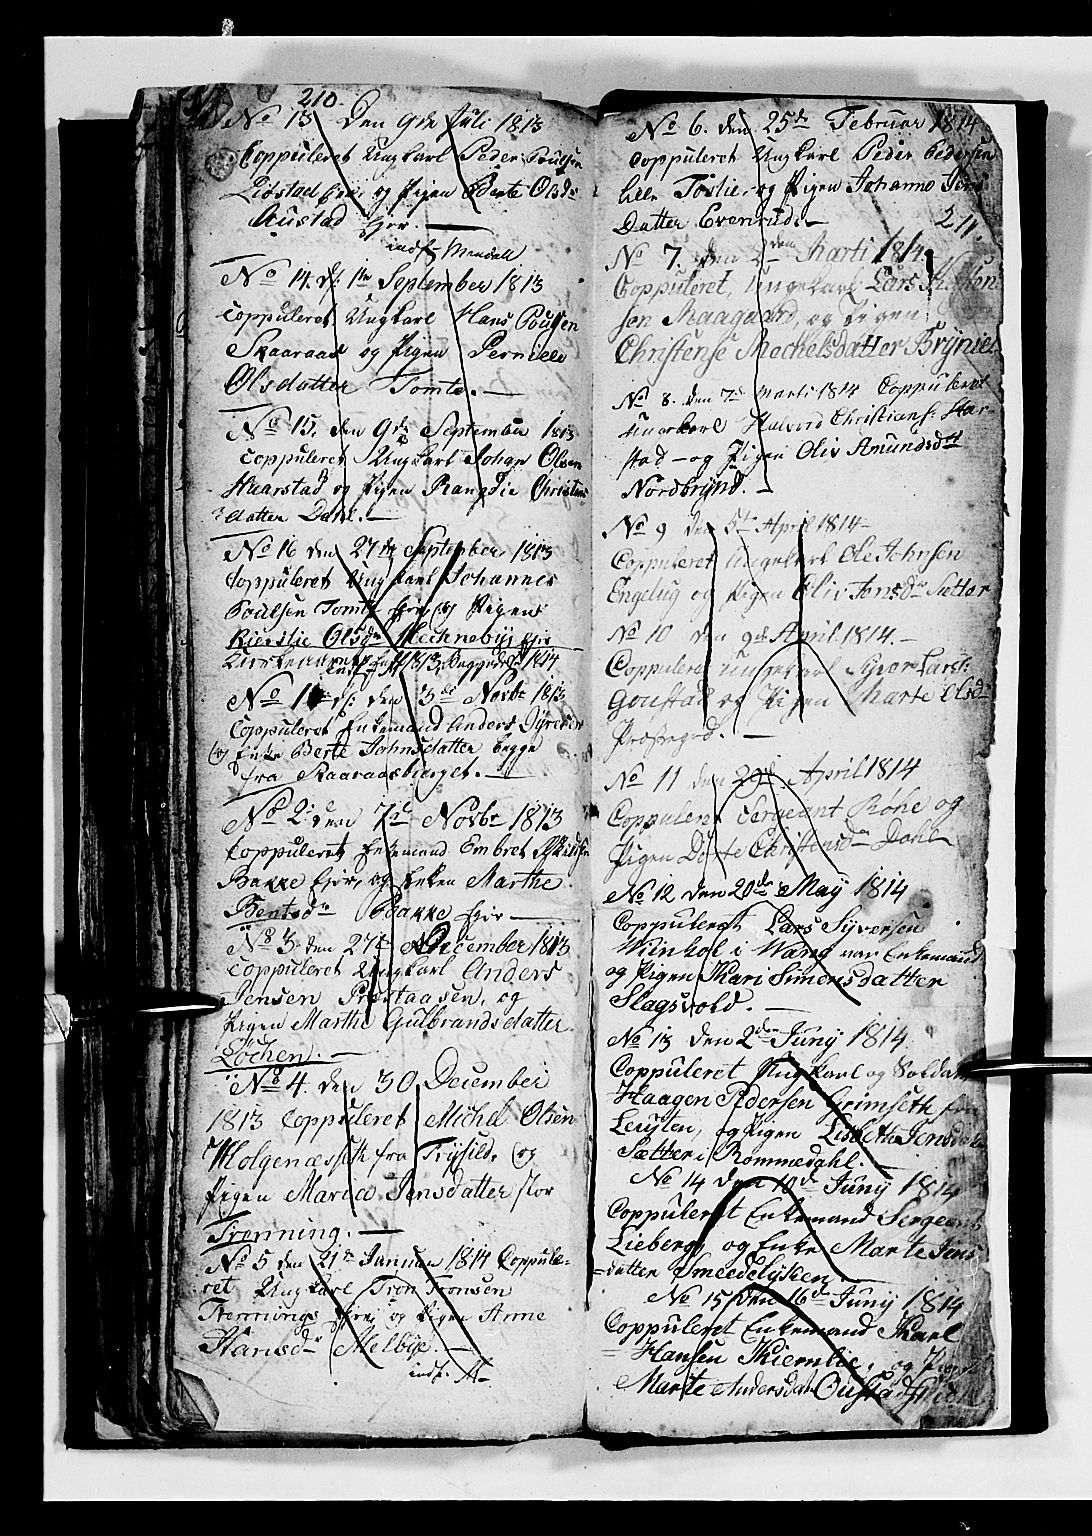 210.
No 13 Den 9de Juli 1813
Coppuleret Ungkarl Peder Poulsen
og Pigen Berte Olsd.
Austad Ejer.
indf. Mendell
No 14. d: 1te September 1813
Coppuleret Ungkarl Hans Poulsen
Skaaraas og Pigen Pernille
Olsdatter Tomte.
No 15. den 9de September 1813
Coppuleret Ungkarl Johan Olsen
Haarstad og Pigen Rangdie Christens
datter Dahl.
No 16 den 27de September 1813
Coppuleret Ungkarl Johannes
Poulsen Tomte Ejer og Pigen
Kierstie Olsdr Mechnebÿe Ejer
1813 Begyndt 1814
No 1 d: den 3de Novbr 1813
Coppuleret Enkemand Anders
og Enke Berte Johnsdatter begge
fra Skaaraasberget.
No 2: den 7de Novbr 1813
Coppuleret Enkemand Embret
Bakke Ejer, og Enken Marthe
Bentsdr Bakke Ejer
No 3. den 27de December 1813
Coppuleret Ungkarl Anders
Jensen Præstaasen, og
Pigen Marthe Gulbrandsdatter
Løchen.
No 4. den 30 December
1813 Coppuleret Michel Olsen
Molgenæsseth fra Trÿsild, og
Pigen Maria Jensdatter stor
Trønning.
No 5 den 21de Januar 1814 Coppule-
ret Ungkarl Tron Tronsen
Trønnings Ejer og Pigen Anne
Hansdr Melbÿe.
indf.
No 6. den 25de Februar 1814
Coppuleret Ungkarl Peder Pedersen
lille Tøslie, og Pigen Johanne Jens
Datter Evenrud.
211.
No 7. den 2den Marti 1814
Coppuleret, Ungekarl Lars
sen Aaagaard, og Pigen
Christense Mechelsdatter Brÿnie
No 8. den 7de Marti 1814 Coppuleret
Ungekarl Halvord Christians: Har-
stad - og Pigen Oliv Amundsdtt
Nordbrÿnd.
No 9 den 5te April 1814
Coppuleret Ungekarl Ole Johnsen
Engelug og Pigen Oliv Jensdr Sætter
No 10 den 9de April 1814.
Coppuleret Ungekarl Syver Larss:
Goustad og Pigen Marte Olsdr
Præstegrd.
No 11 den 29de April 1814
Coppuleret Sergeant Røhe og
Pigen Dorte Christensdr Dahl
No 12 den 20de Maÿ 1814
Coppuleret Lars Sÿversen
i Wang var Enkemand
og Pigen Kari Simensdatter
Slagsvold.
No 13 den 2den Junÿ 1814
Coppuleret Ungkarl og Soldat
Haagen Pedersen Grimseth fra
Leuten, og Pigen Lisbeth Jensdatter
Sætter i Rommedahl.
No 14 den 10de Junÿ 1814
Coppuleret Enkemand Sergeant
Lieberg, og Enke Marte Jens
datter Smeedelÿkken.
No 15 den 16de Junÿ 1814
Coppuleret Enkemand Karl
Hansen Kiernlie, og Pigen
Marte Andersdatter